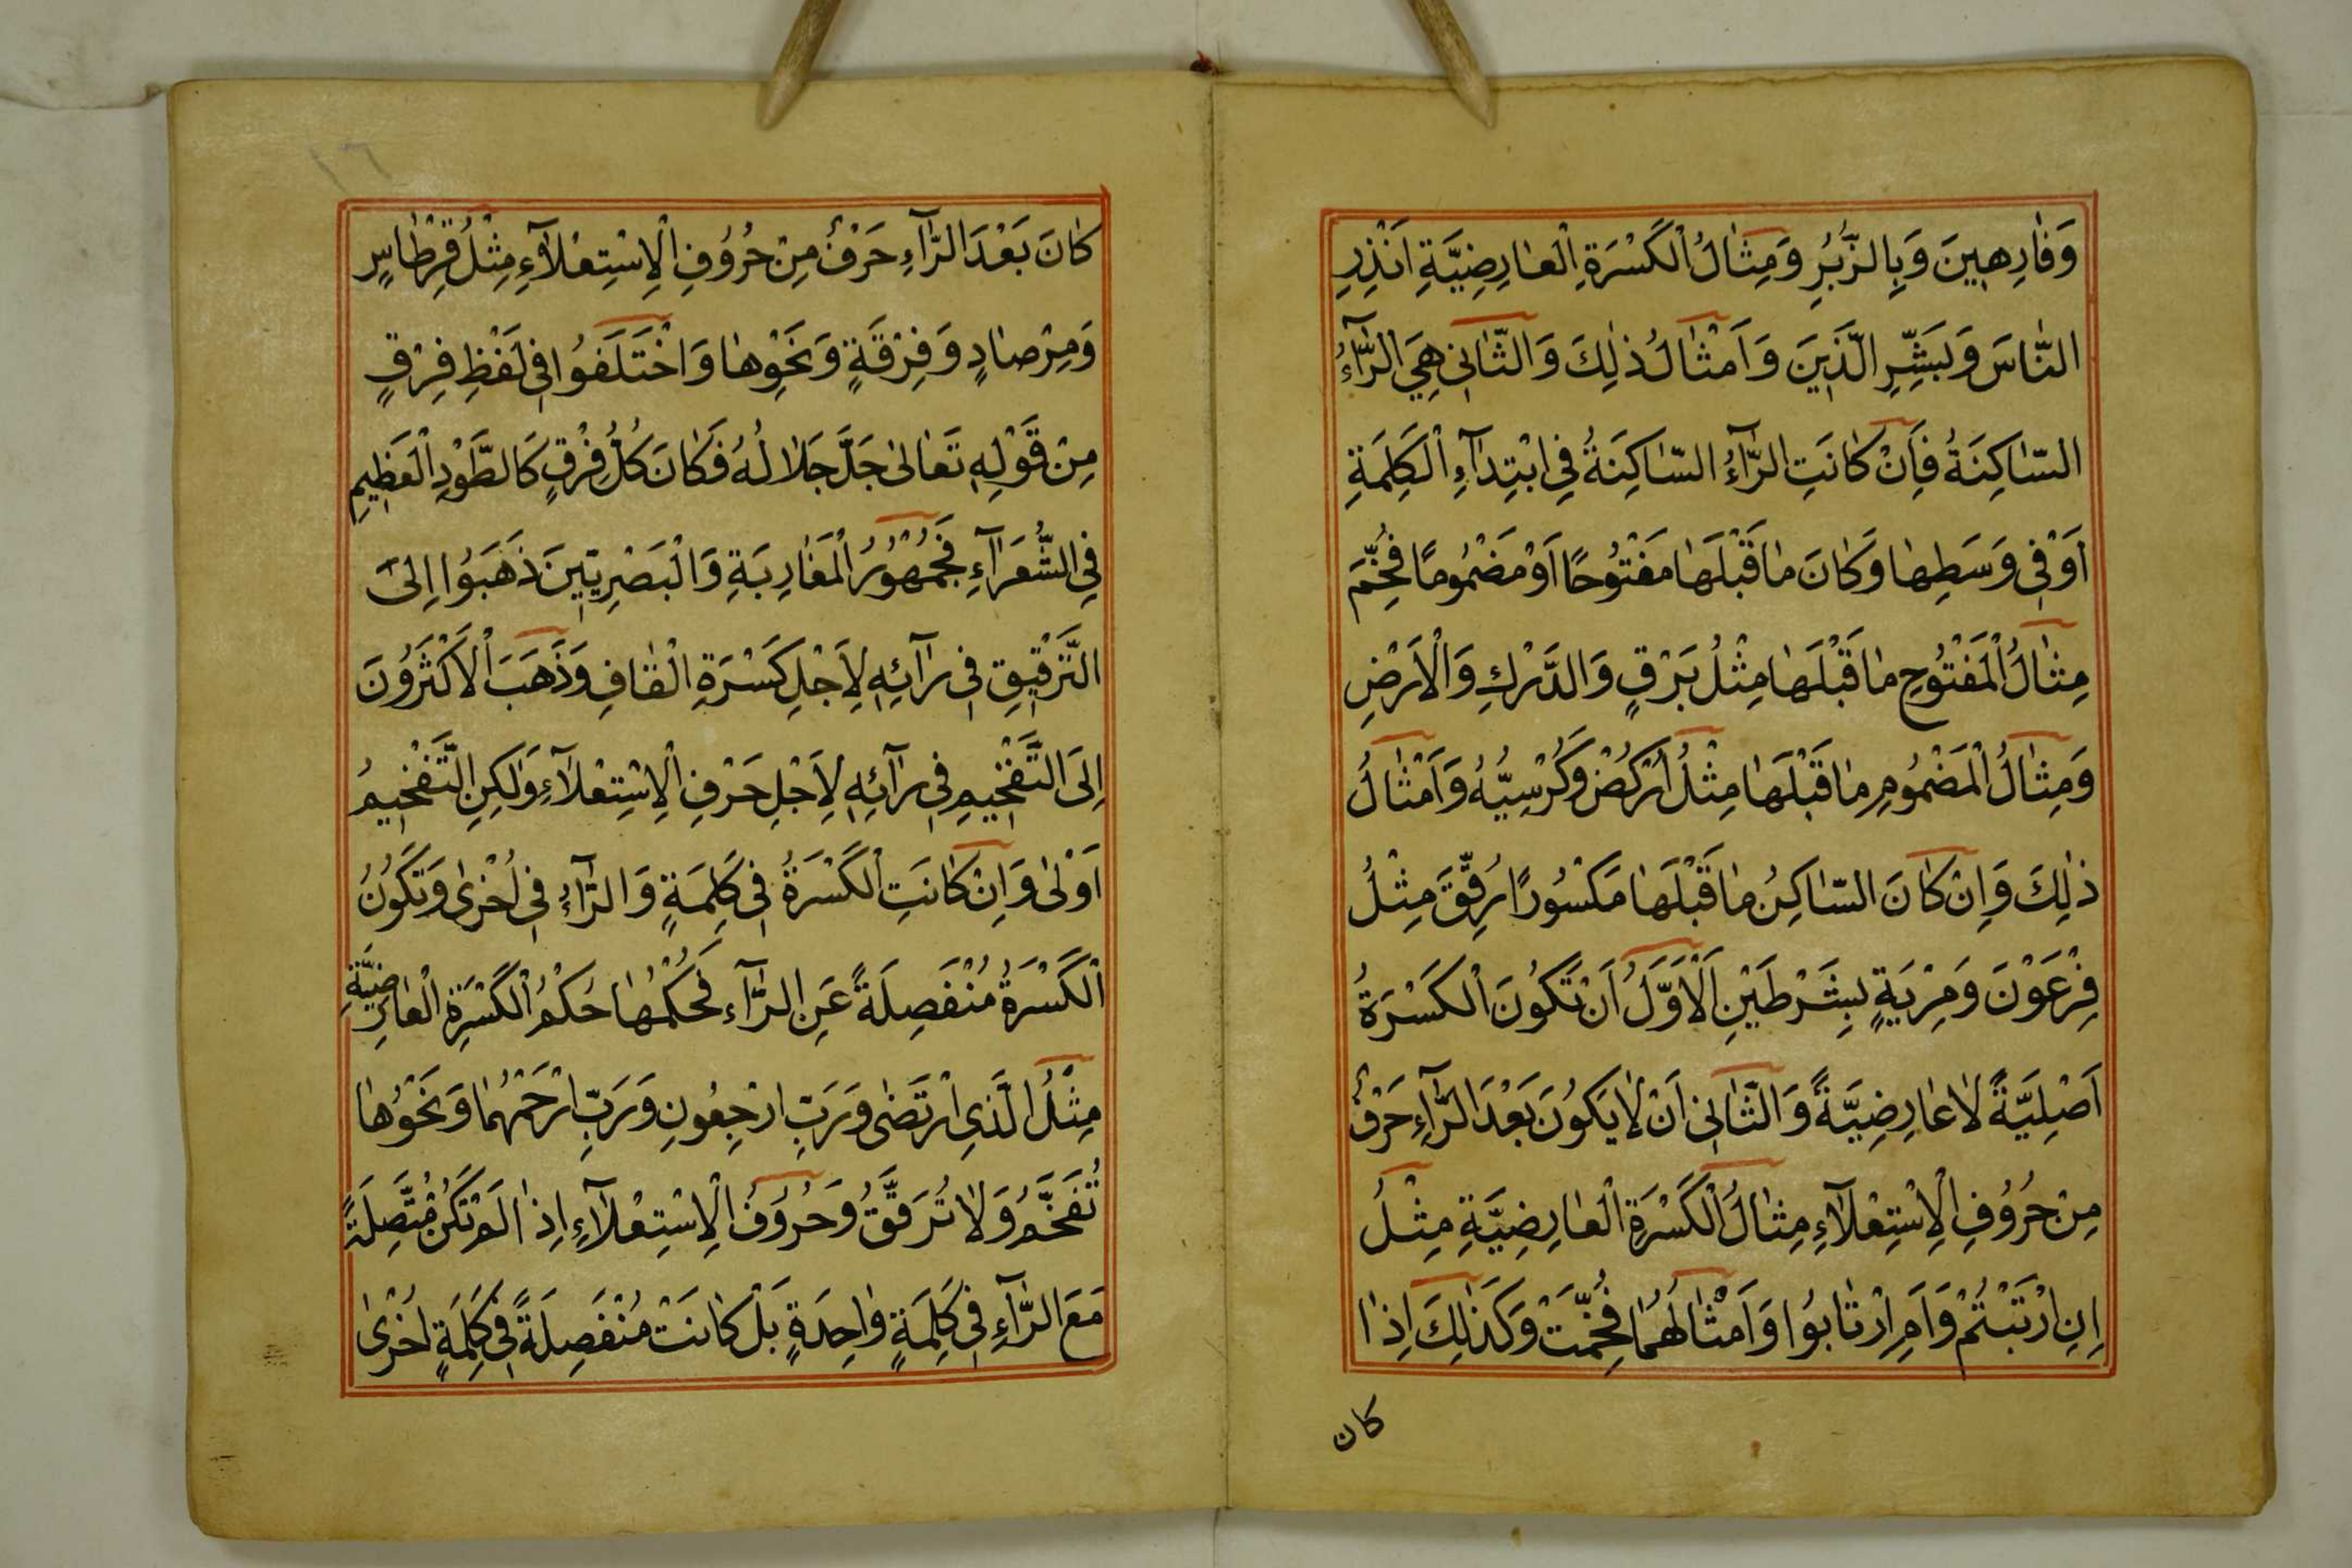 وَفَارِهِينَ وَبِالزُّبُرِ وَمِثَالُ الْكَسْرَةِ الْعَارِضِيَّةِ اَنْذِرِ
النَّاسَ وَبَشِّرِ الَّذِينَ وَاَمْثَالُ ذٰلِكَ وَالثَّانِي هِيَ الرَّآءُ
السَّاكِنَةُ فَاِنْ كَانَتِ الرَّآءُ السَّاكِنَةُ فِي ابْتِدَآءِ الْكَلِمَةِ
اَوْ فِي وَسَطِهَا وَكَانَ مَا قَبْلَهَا مَفْتُوحًا اَوْ مَضْمُومًا فُخِّمَ
مِثَالُ الْمَفْتُوحِ مَا قَبْلَهَا مِثْلُ بَرْقٍ وَالدَّرْكِ وَالْاَرْضِ
وَمِثَالُ الْمَضْمُومِ مَا قَبْلَهَا مِثْلُ اُرْكُضْ وَكُرْسِيُّهُ وَاَمْثَالُ
ذٰلِكَ وَاِنْ كَانَ السَّاكِنُ مَا قَبْلَهَا مَكْسُورًا رُقِّقَ مِثْلُ
فِرْعَوْنَ وَمِرْيَةٍ بِشَرْطَيْنِ اَلْاَوَّلُ اَنْ تَكُونَ الْكَسْرَةُ
اَصْلِيَّةً لَا عَارِضِيَّةً وَالثَّانِي اَنْ لَا يَكُونَ بَعْدَ الرَّآءِ حَرْفٌ
مِنْ حُرُوفِ الْاِسْتِعْلَآءِ مِثَالُ الْكَسْرَةِ الْعَارِضِيَّةِ مِثْلُ
اِنِ ارْتَبْتُمْ وَاَمِ ارْتَابُوا وَاَمْثَالُهُمَا فُخِّمَتْ وَكَذٰلِكَ اِذَا
كان
١٦
كَانَ بَعْدَ الرَّآءِ حَرْفٌ مِنْ حُرُوفِ الْاِسْتِعْلَآءِ مِثْلُ قِرْطَاسٍ
وَمِرْصَادٍ وَفِرْقَةٍ وَنَحْوِهَا وَاخْتَلَفُوا فِي لَفْظِ فِرْقٍ
مِنْ قَوْلِهِ تَعَالىٰ جَلَّ جَلَالُهُ فَكَانَ كُلُّ فِرْقٍ كَالطَّوْدِ الْعَظِيمِ
فِي الشُّعَرَآءِ فَجُمْهُورُ الْمَغَارِبَةِ وَالْبَصْرِيِّينَ ذَهَبُوا اِلىَ
التَّرْقِيقِ فِي رَآئِهِ لِاَجْلِ كَسْرَةِ الْقَافِ وَذَهَبَ الْاَكْثَرُونَ
اِلَى التَّفْخِيمِ فِي رَآئِهِ لِاَجْلِ حَرْفِ الْاِسْتِعْلَآءِ وَلٰكِنِ التَّفْخِيمُ
اَوْلىٰ وَاِنْ كَانَتِ الْكَسْرَةُ فِي كَلِمَةٍ وَالرَّآءُ فِي اُخْرىٰ وَتَكُونُ
الْكَسْرَةُ مُنْفَصِلَةً عَنِ الرَّآءِ فَحُكْمُهَا حُكْمُ الْكَسْرَةِ الْعَارِضِيَّةِ
مِثْلُ الَّذِي ارْتَضىٰ وَرَبِّ ارْجِعُونِ وَرَبِّ ارْحَمْهُمَا وَنَحْوُهَا
تُفَخَّمُ وَلَا تُرَقَّقُ وَحُرُوفُ الْاِسْتِعْلَآءِ اِذَا لَمْ تَكُنْ مُتَّصِلَةً
مَعَ الرَّآءِ فِي كَلِمَةٍ وَاحِدَةٍ بَلْ كَانَتْ مُنْفَصِلَةً فِي كَلِمَةٍ اُخْرىٰ